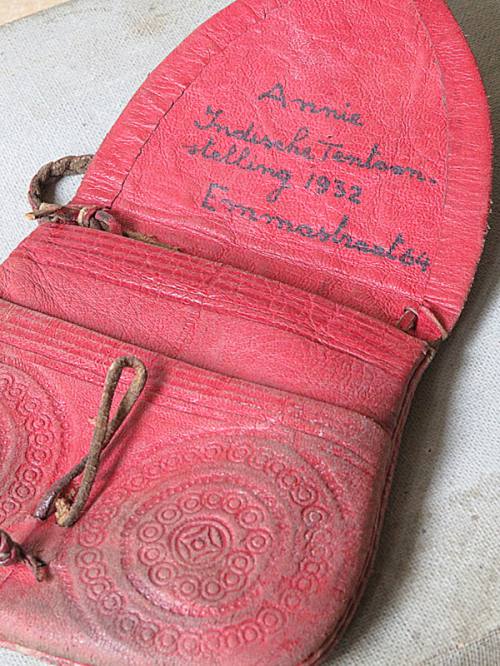 Annie
Indische Tentoon-
stelling 1932
Emmastraat 64